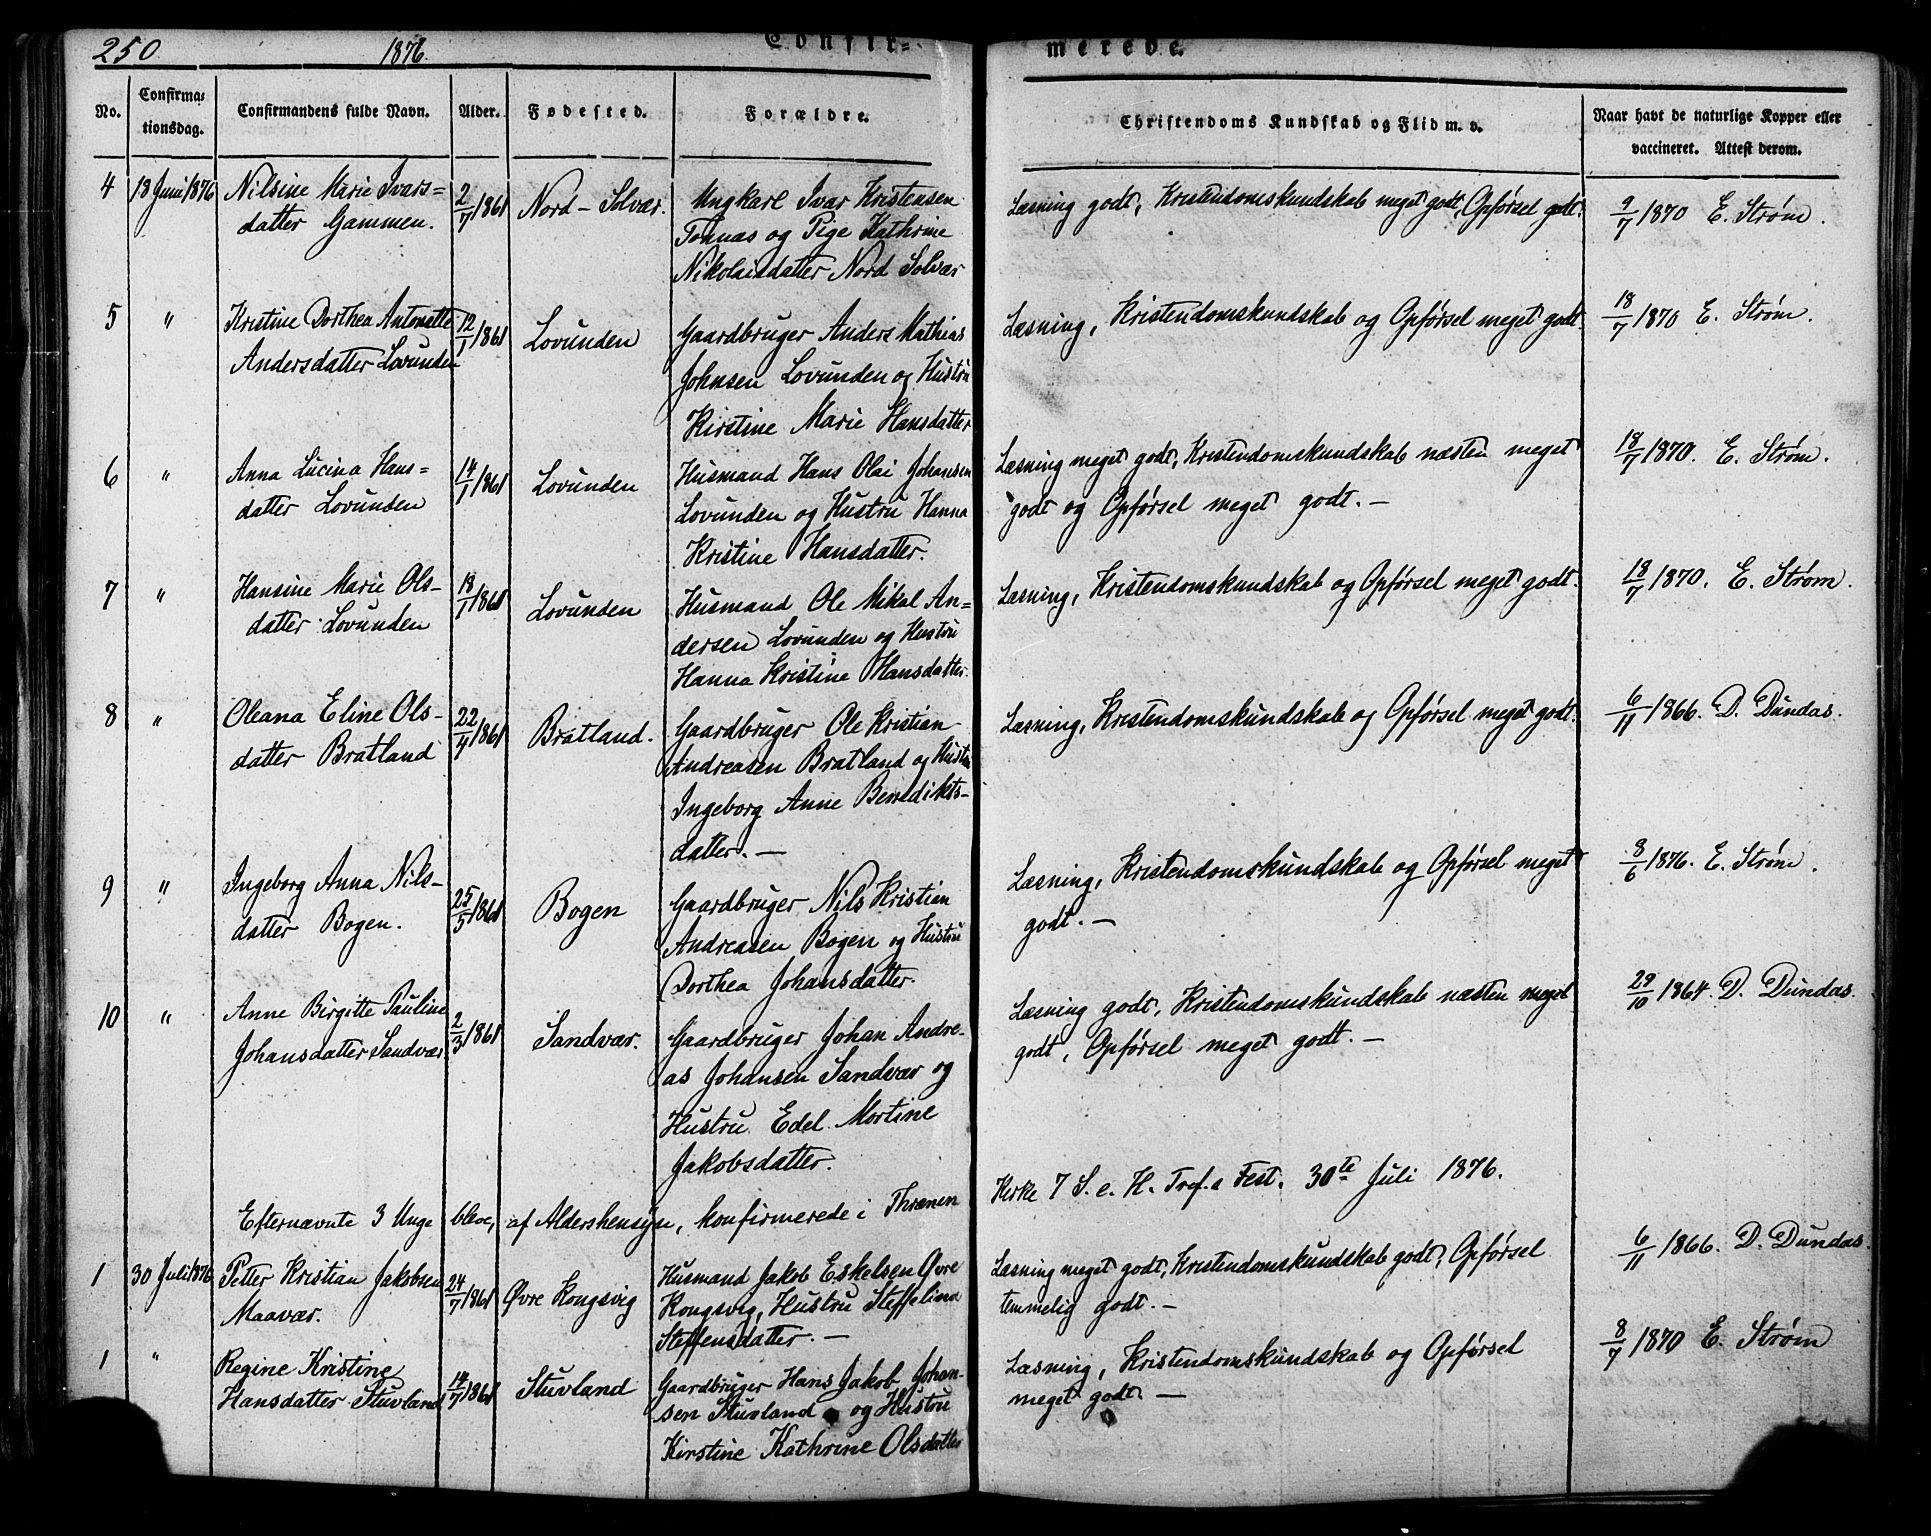 250. 1876. Confir=
merede.
No. Confirma=
tionsdag. Confirmandens fulde Navn. Alder. Fødested. Forældre.
Christendoms Kundskab og Flid m. v. Naar havt de naturlige Kopper eller
vaccineret. Attest derom.
4 18 Juni 1876 Nilsine Marie Ivars=
datter Gammen. 2/7 1861 Nord-Solvær. Ungkarl Ivar Kristensen
Tonnas og Pige Kathrine
Nikolaisdatter Nord Solvær
Læsning godt, Kristendomskundskab meget godt, Opførsel godt. 9/7 1870 E. Strøm.
5 " Kristine Dorthea Antonette
Andersdatter Lovunden 12/1 1861 Lovunden Gaardbruger Anders Mathias
Johnsen Lovunden og Hustru
Kirstine Marie Hansdatter
Læsning, Kristendomskundskab og Opførsel meget godt. 18/7 1870 E. Strøm.
6 " Anna Lucina Hans=
datter Lovunden 14/1 1861 Lovunden Husmand Hans Olai Johansen
Lovunden og Hustru Hanna
Kristine Hansdatter.
Læsning meget godt, Kristendomskundskab næsten meget
godt og Opførsel meget godt. — 18/7 1870. E. Strøm.
7 " Hansine Marie Ols-
datter Lovunden 18/1 1861 Lovunden Husmand Ole Mikal An=
dersen Lovunden og Hustru
Hanna Kristine Hansdatter.
Læsning, Kristendomskundskab og Opførsel meget godt. 18/7 1870. E. Strøm.
8 " Oleana Eline Ols-
datter Bratland 22/4 1861 Bratland. Gaardbruger Ole Kristian
Andreasen Bratland og Hustru
Ingeborg Anne Benedikts-
datter. —
Læsning, Kristendomskundskab og Opførsel meget godt. 6/11 1866. D. Dundas.
9 " Ingeborg Anna Nils-
datter Bogen. 25/5 1861 Bogen Gaardbruger Nils Kristian
Andreasen Bogen og Hustru
Dorthea Johansdatter.
Læsning, Kristendomskundskab og Opførsel meget
godt. — 8/6 1876. E. Strøm.
10 " Anne Birgitte Pauline
Johansdatter Sandvær 2/3 1861 Sandvær. Gaardbruger Johan Andre-
as Johansen Sandvær og
Hustru Edel Mortine
Jakobsdatter.
Læsning godt, Kristendomskundskab næsten meget
godt, Opførsel meget godt. — 29/10 1864. D. Dundas.
Efternævnte 3 Unge bleve, af Aldershensyn, konfirmerede i Thrænen
Kirke 7 S. e. H. Tref. Fest. 30te Juli 1876.
1 30 Juli 1876 Petter Kristian Jakobsen
Maavær. 24/7 1861 Øvre Kongsvig Husmand Jakob Eskelsen Øvre
Kongsvig, Hustru Steffelina
Steffensdatter. —
Læsning meget godt, Kristendomskundskab godt, Opførsel
temmelig godt. — 6/11 1866. D. Dundas.
1 " Regine Kristine
Hansdatter Stuvland 14/7 1861 Stuvland Gaardbruger Hans Jakob Johan-
sen Stuvland og Hustru
Kirstine Kathrine Olsdatter
Læsning, Kristendomskundskab og Opførsel
meget godt — 8/7 1870 E. Strøm